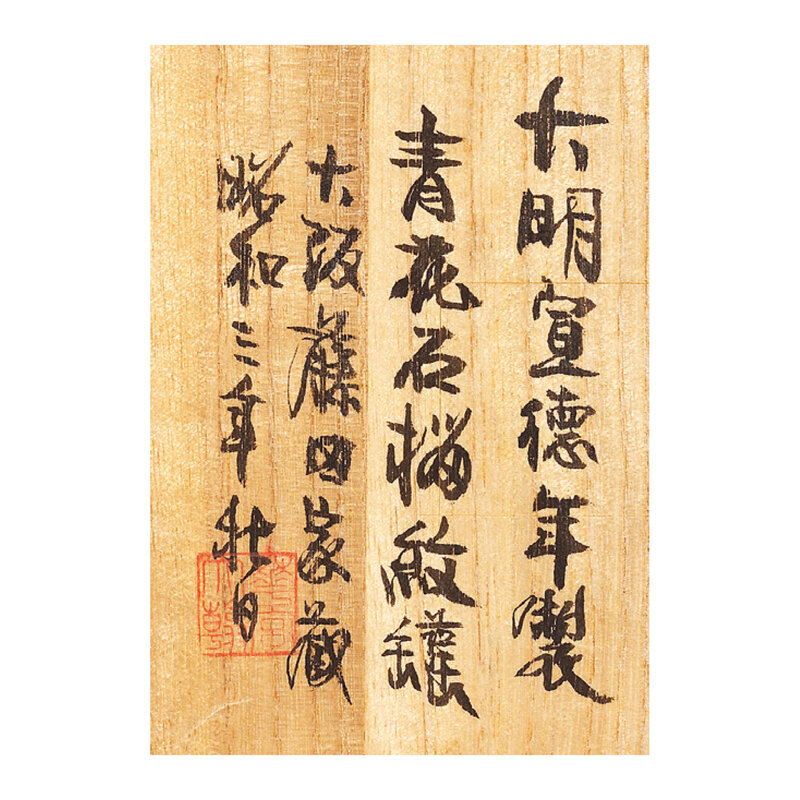 大明宣德年製
青花石榴紋罐
大阪藤田家蔵
昭和三年秋日